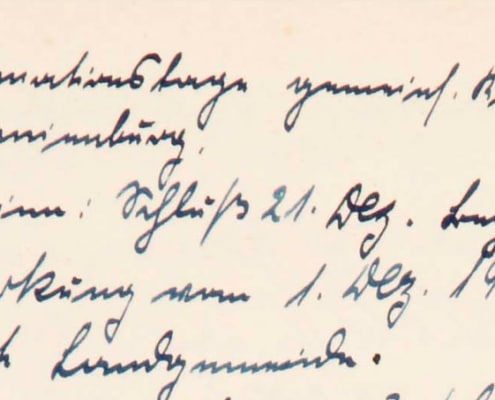 mationstage gemeins. K
anienburg.
inn: Schluß 21. Dez. Be
rkung vom 1. Dez. 19
Landgemeinde.